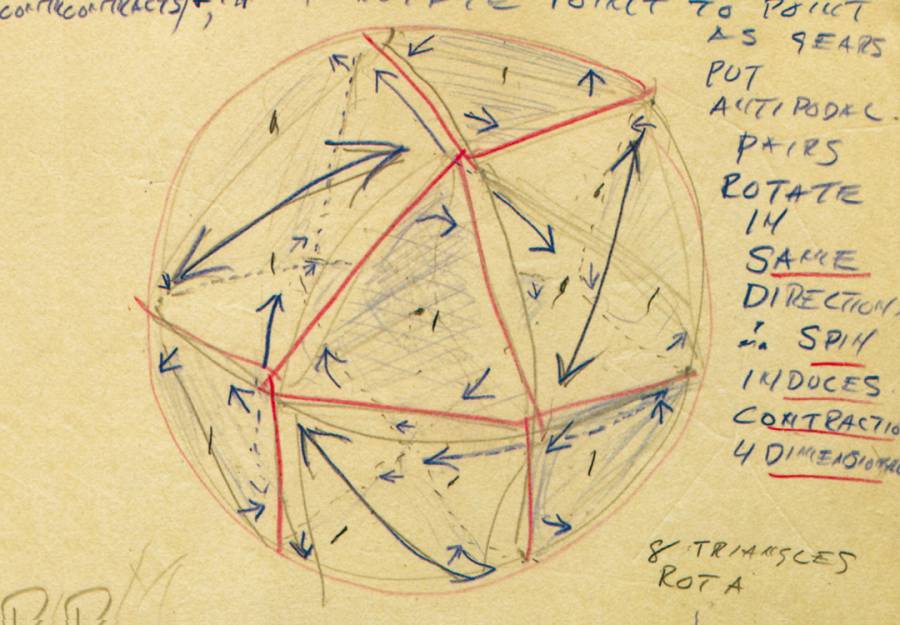 ROTATE POINT TO POINT
AS GEARS
PUT
ANTIPODAL
PAIRS
ROTATE
IN
SAME
DIRECTION
SPIN
INDUCES
CONTRACTIO
4 DIMENSIONAL
8 TRIANGLES
ROTA